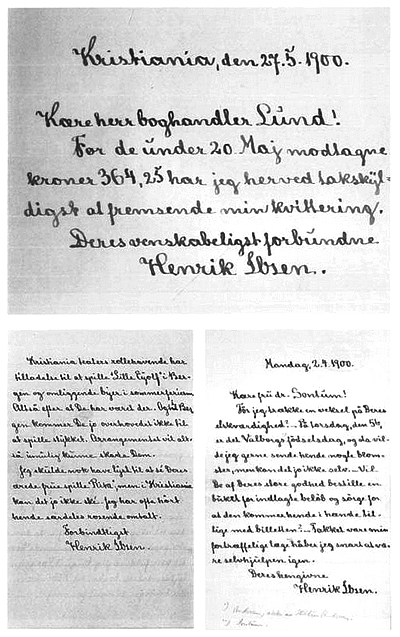 Kristiania, den 27.5.1900.
Kære herr boghandler Lund!
For de under 20 Maj modtagne
kroner 364,25 har jeg herved takskyl-
digst at fremsende min kvittering.
Deres venskabeligst forbundne
Henrik Ibsen.
Kristiania teaters rollehavende har
tilladelse til at spille "Lille Eyolf" i Ber-
gen og omliggende byer i sommerferien
Altså efter at De har været der. Også Ber-
gen kommer De jo overhovedet ikke til
at spille stykket. Arrangementet vil alt-
så umulig kunne skade Dem.
Jeg skulde nok have lyst til at se Deres
frue spille "Rita", men i Kristiania
kan det jo ikke ske. Jeg har ofte hørt
hende særdeles rosende omtalt.
Forbindtligst
Henrik Ibsen.
Mandag, 2.4.1900.
Kære frú dr. Sontum!
Før jeg trække en veksel på Deres
elskværdighed? På torsdag, den 5te,
er det Valborgs fødselsdag, og da vil-
de jeg gerne sende hende nogle blom-
ster, men kan det jo ikke selv. Vil
De af Deres store godhed bestille en
buket for indlagte beløb og sørge for
at den kommer hende i hænde til-
lige med billetten? Takket være min
fortræffelige læge håber jeg snart at væ-
re selvhjulpen igen.
Deres hengivne
Henrik Ibsen.